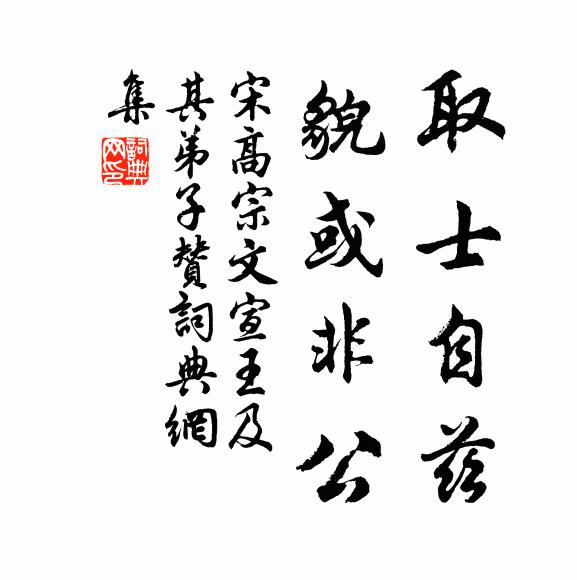 取士自茲
貌或非公
宋高宗文宣王及
其弟子贊詞典網
集
詞典
网印